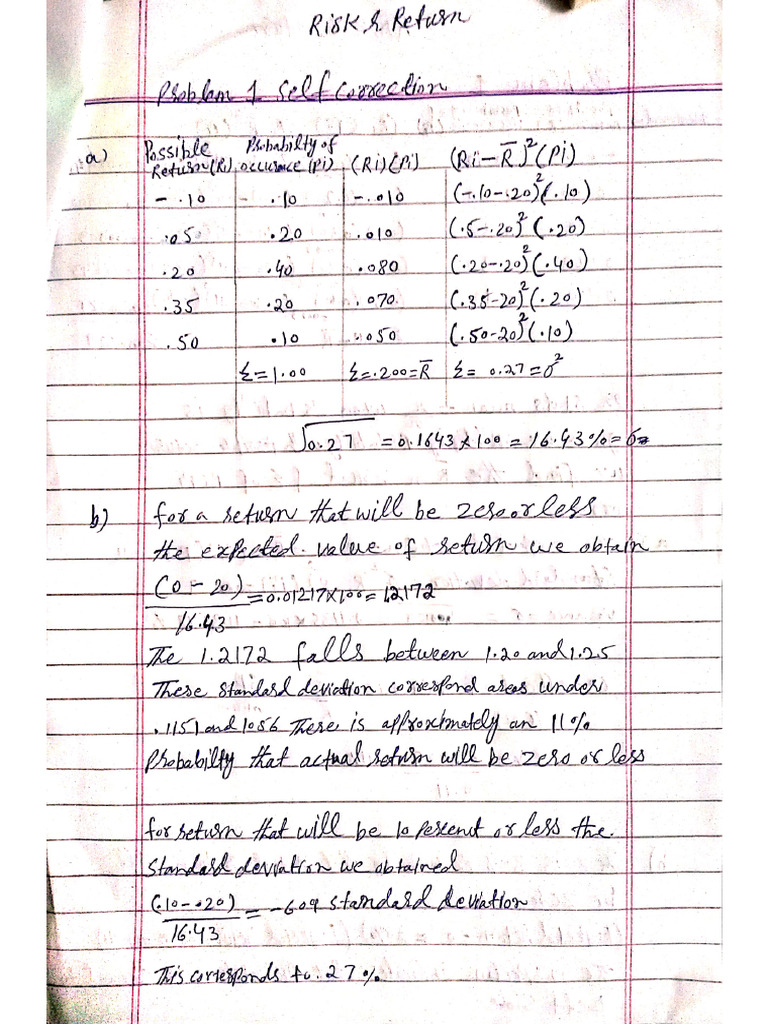 Risk & Return
Problem 1 Self Correction
a) Possible Return(R) Probabilty of occurance (Pi) (Ri)(Pi) (Ri-R̄)²(Pi)
-.10 .10 -.010 (-.10-.20)²(.10)
.05 .20 .010 (.5-.20)²(.20)
.20 .40 .080 (.20-.20)²(.40)
.35 .20 .070 (.35-20)²(.20)
.50 .10 .050 (.50-20)²(.10)
Σ=1.00 Σ=.200=R̄ Σ= 0.27=σ²
√0.27 = 0.1643x100 = 16.43%=σ
b) for a return that will be zero or less
the expected value of return we obtain
(0-20)/16.43 =0.01217x100=1.2172
The 1.2172 falls between 1.20 and 1.25
These standard deviation correspond areas under
.1151 and 1056 There is approxtmately an 11%
Probabilty that actual return will be zero or less
for return that will be 10 percent or less the
standard deviation we obtained
(.10-.20)/16.43 = -609 standard deviation
This corresponds to .27%